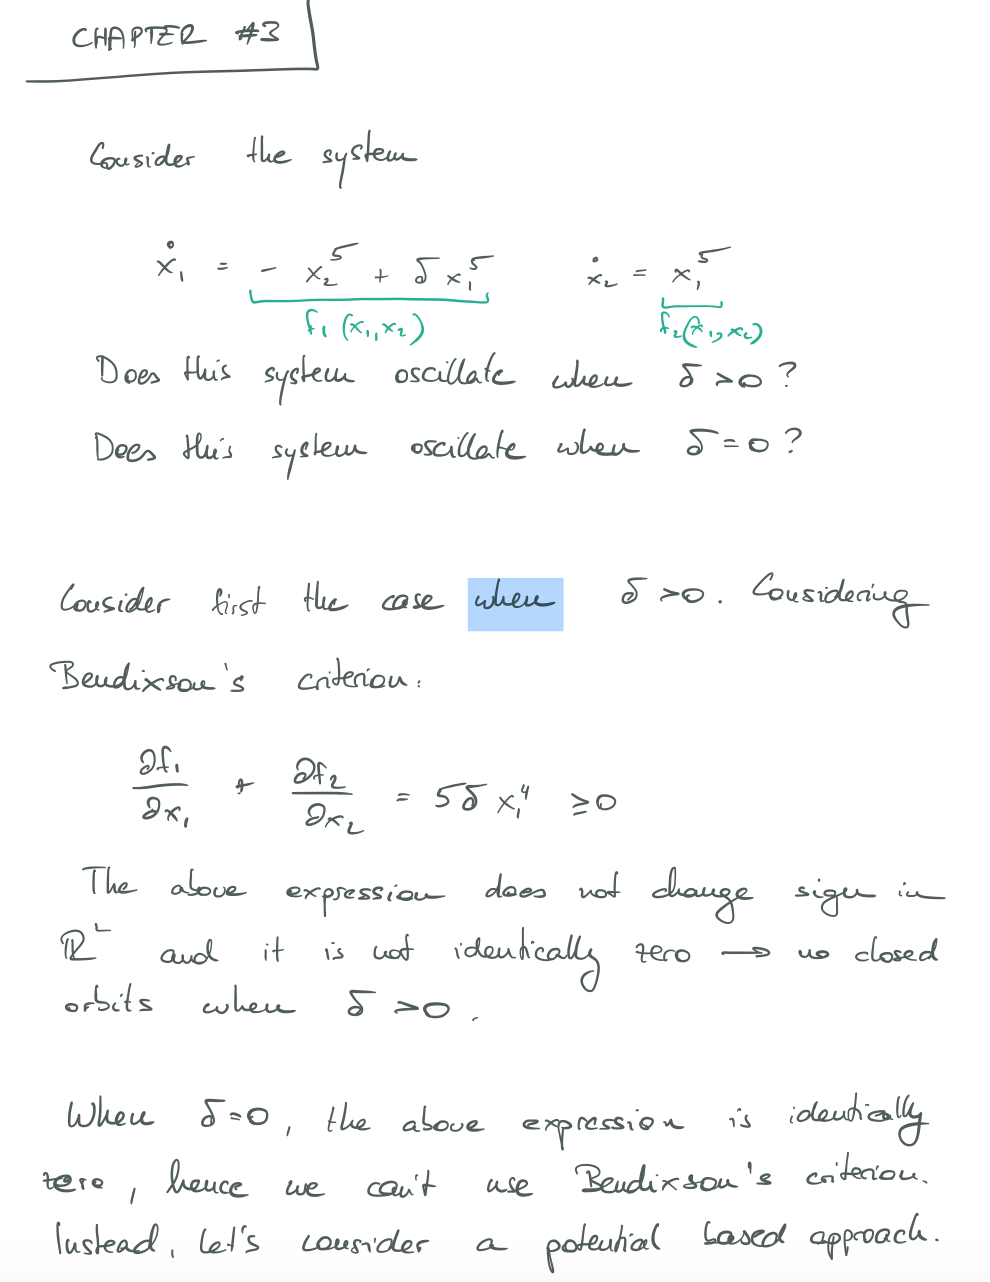 CHAPTER #3
Consider the system
ẋ₁ = - x₂⁵ + δ x₁⁵ ẋ₂ = x₁⁵
f₁ (x₁, x₂) f₂(x₁, x₂)
Does this system oscillate when δ >0 ?
Does this system oscillate when δ = 0 ?
Consider first the case when δ >0. Considering
Bendixson's criterion.
∂f₁/∂x₁ + ∂f₂/∂x₂ = 5δ x₁⁴ ≥0
The above expression does not change sign in
ℝ² and it is not identically zero → no closed
orbits when δ >0.
When δ=0, the above expression is identically
zero, hence we can't use Bendixson's criterion.
Instead, let's consider a potential based approach.